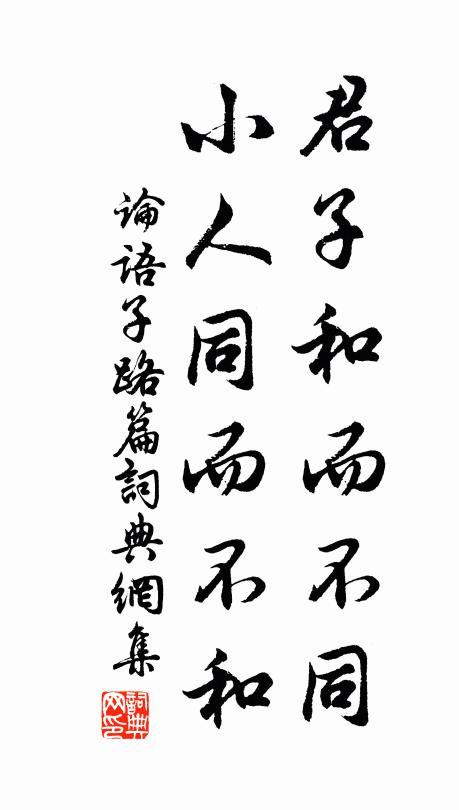 君子和而不同
小人同而不和
論語子路篇詞典網集
詞典
网印